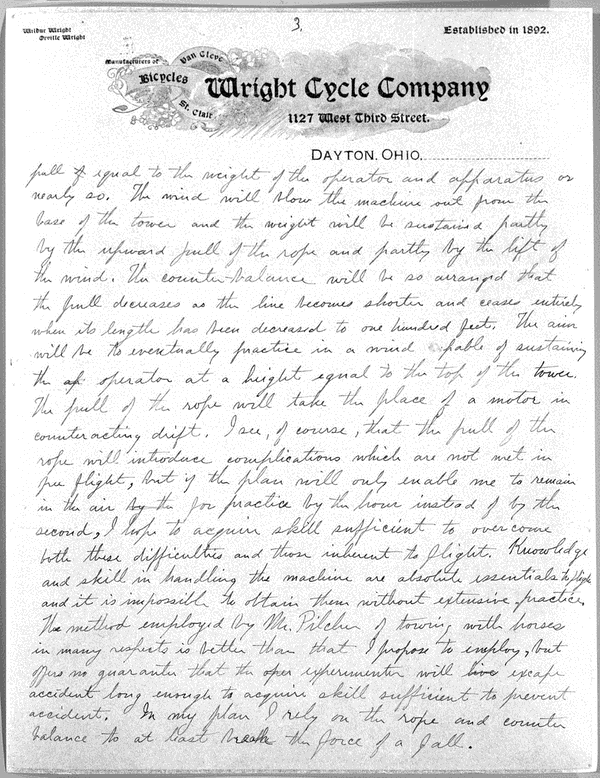 3.
Wilbur Wright
Orville Wright
Established in 1892.
Manufacturers of
Bicycles
Van Cleve
St. Clair
Wright Cycle Company
1127 West Third Street.
DAYTON, OHIO,
pull of equal to the weight of the operator and apparatus or
nearly so. The wind will blow the machine out from the
base of the tower and the weight will be sustained partly
by the upward pull of the rope and partly by the lift of
the wind. The counter-balance will be so arranged that
the pull decreases as the line becomes shorter and ceases entirely
when its length has been decreased to one hundred feet. The aim
will be to eventually practice in a wind capable of sustaining
the op operator at a height equal to the top of the tower.
The pull of the rope will take the place of a motor in
counteracting drift. I see, of course, that the pull of the
rope will introduce complications which are not met in
free flight, but if the plan will only enable me to remain
in the air by the for practice by the hour instead of by the
second, I hope to acquire skill sufficient to overcome
both these difficulties and those inherent to flight. Knowledge
and skill in handling the machine are absolute essentials to flight
and it is impossible to obtain them without extensive practice.
The method employed by Mr. Pilcher of towing with horses
in many respects is better than that I propose to employ, but
offers no guarantee that the oper experimenter will live escape
accident long enough to acquire skill sufficient to prevent
accident. In my plan I rely on the rope and counter
balance to at least break the force of a fall.